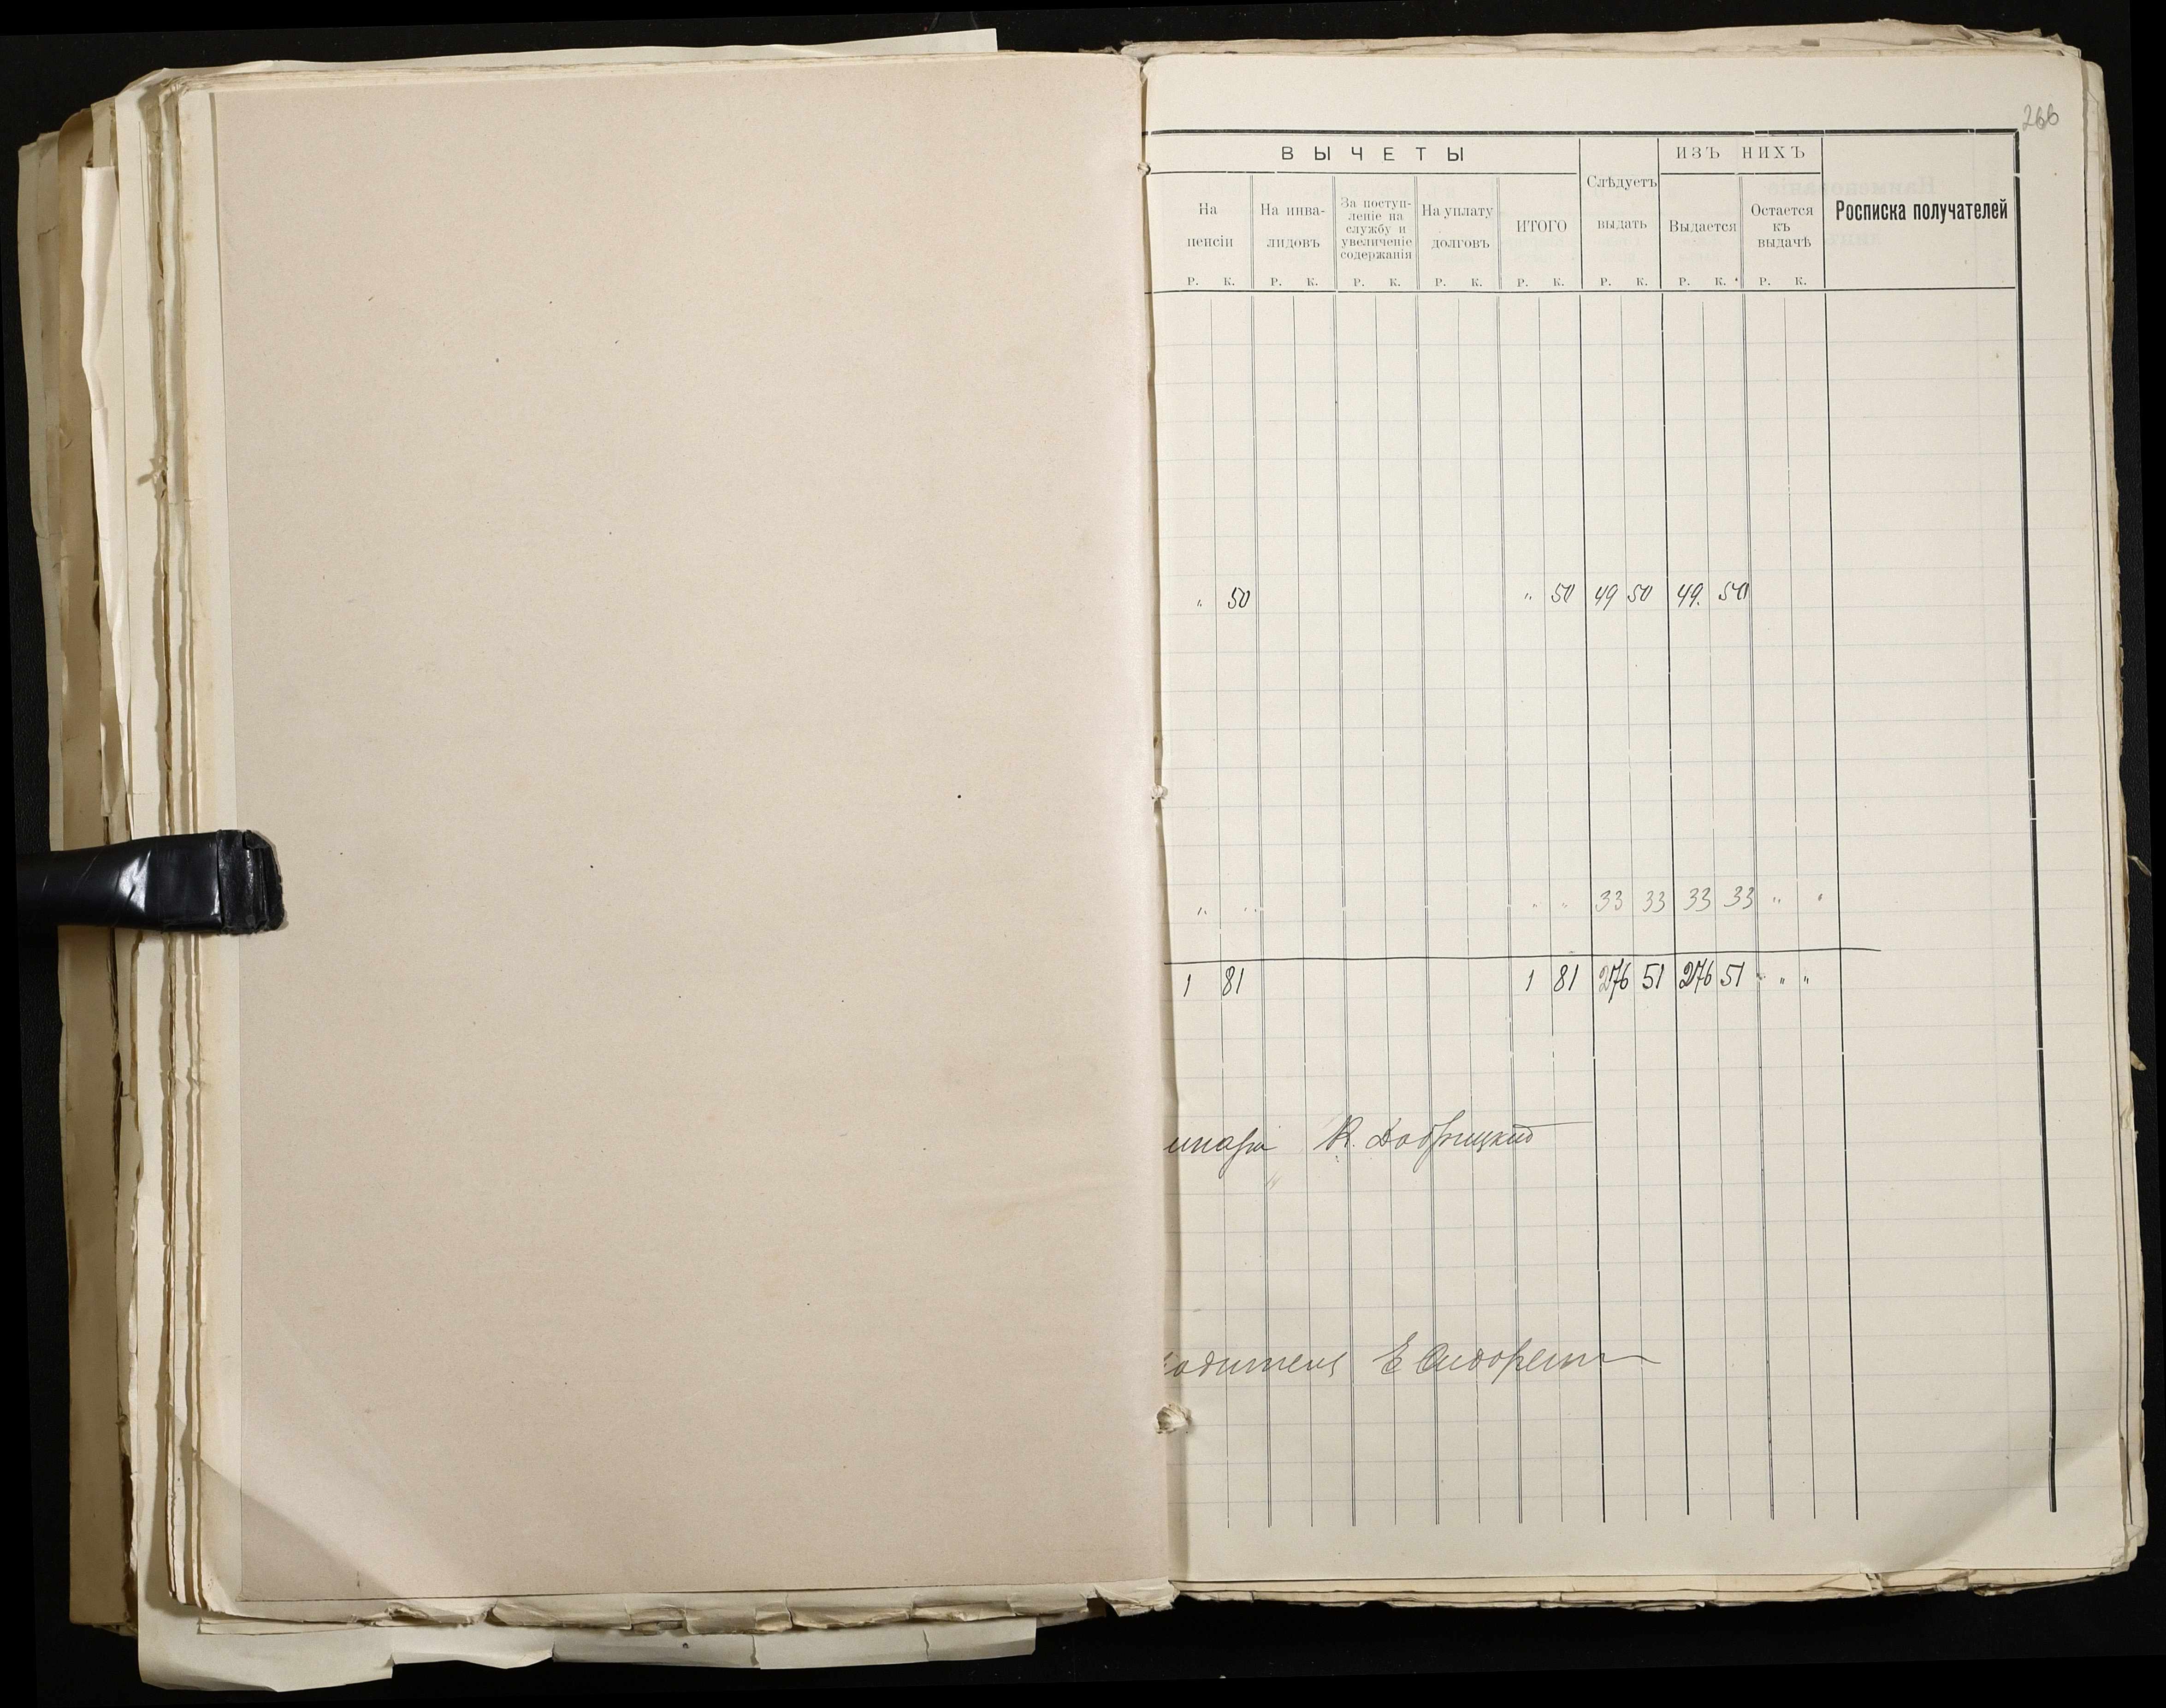 266
ВЫЧЕТЫ
Слѣдуетъ выдать
ИЗЪ НИХЪ
Росписка получателей
На пенсіи
На инва-лидовъ
За поступ-
леніе на
службу и
увеличеніе
содержанія
На уплату
долговъ
ИТОГО
Выдается
Остается
къ
выдачѣ
Р. К. Р. К. Р. К. Р. К. Р. К. Р. К. Р. К. Р. К.
" 50 " 50 49 50 49. 50
" " " " 33 33 33 33 " "
1 81 1 81 276 51 276 51 " "
К. Добрицкій
Е